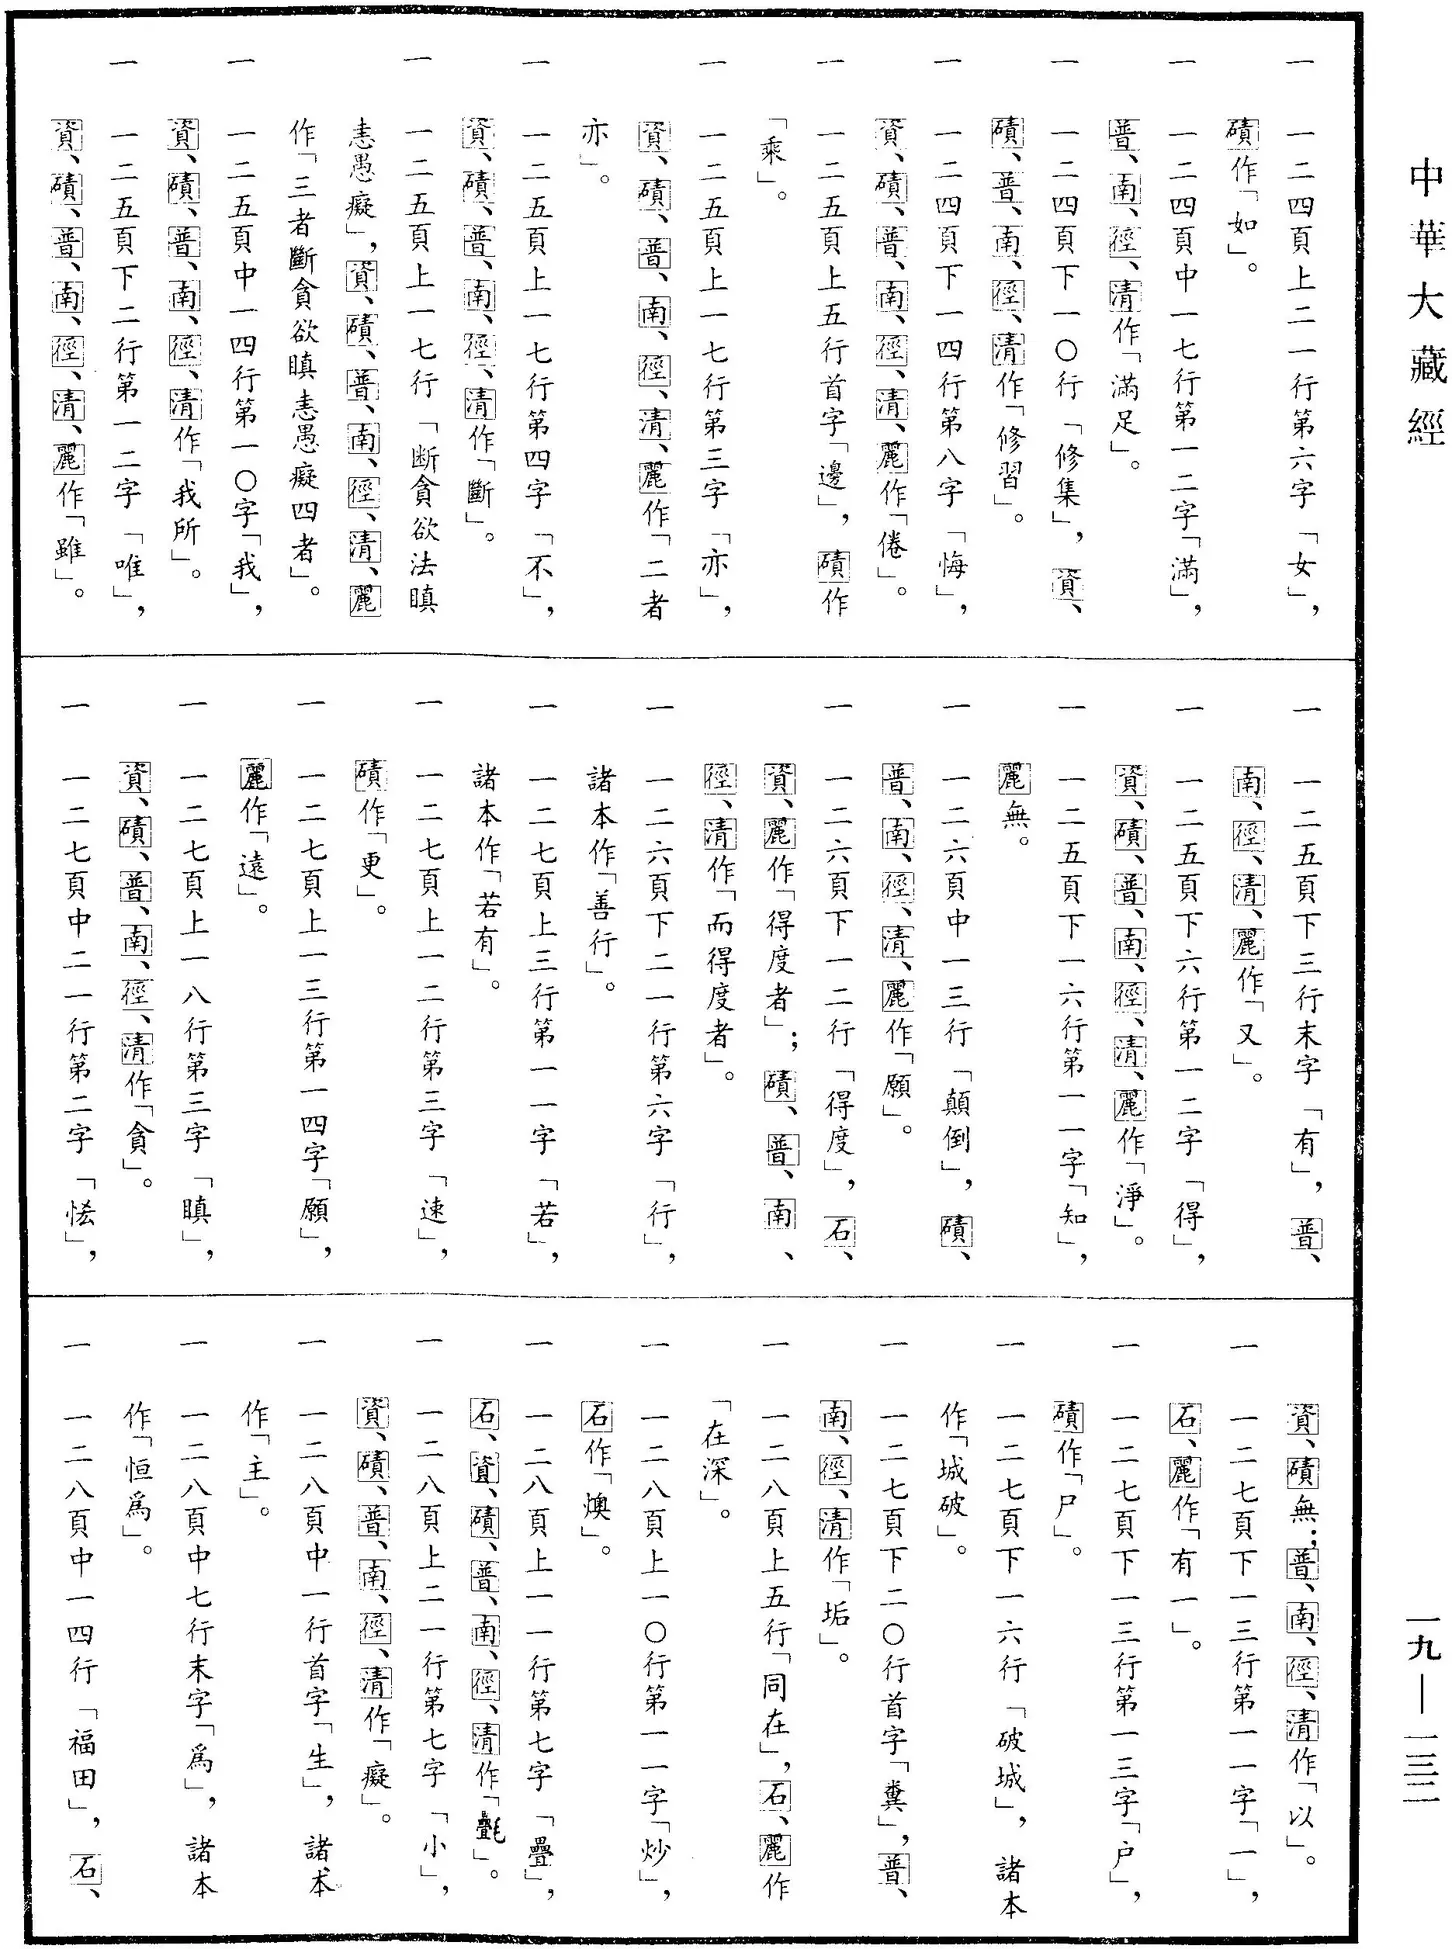 中華大藏經
一 一二四頁上二一行第六字「女」，
磧作「如」。
一 一二四頁中一七行第一二字「滿」，
普、南、徑、清作「滿足」。
一 一二四頁下一〇行「修集」，資、
磧、普、南、徑、清作「修習」。
一 一二四頁下一四行第八字「悔」，
資、磧、普、南、徑、清、麗作「倦」。
一 一二五頁上五行首字「邊」，磧作
「乘」。
一 一二五頁上一七行第三字「亦」，
資、磧、普、南、徑、清、麗作「二者
亦」。
一 一二五頁上一七行第四字「不」，
資、磧、普、南、徑、清作「斷」。
一 一二五頁上一七行「断貪欲法瞋
恚愚癡」，資、磧、普、南、徑、清、麗
作「三者斷貪欲瞋恚愚癡四者」。
一 一二五頁中一四行第一〇字「我」，
資、磧、普、南、徑、清作「我所」。
一 一二五頁下二行第一二字「唯」，
資、磧、普、南、徑、清、麗作「雖」。
一 一二五頁下三行末字「有」，普、
南、徑、清、麗作「又」。
一 一二五頁下六行第一二字「得」，
資、磧、普、南、徑、清、麗作「淨」。
一 一二五頁下一六行第一一字「知」，
麗無。
一 一二六頁中一三行「顛倒」，磧、
普、南、徑、清、麗作「願」。
一 一二六頁下一二行「得度」，石、
資、麗作「得度者」；磧、普、南、
徑、清作「而得度者」。
一 一二六頁下二一行第六字「行」，
諸本作「善行」。
一 一二七頁上三行第一一字「若」，
諸本作「若有」。
一 一二七頁上一二行第三字「速」，
磧作「更」。
一 一二七頁上一三行第一四字「願」，
麗作「遠」。
一 一二七頁上一八行第三字「瞋」，
資、磧、普、南、徑、清作「貪」。
一 一二七頁中二一行第二字「恡」，
資、磧無；普、南、徑、清作「以」。
一 一二七頁下一三行第一一字「一」，
石、麗作「有一」。
一 一二七頁下一三行第一三字「户」，
磧作「尸」。
一 一二七頁下一六行「破城」，諸本
作「城破」。
一 一二七頁下二〇行首字「糞」，普、
南、徑、清作「垢」。
一 一二八頁上五行「同在」，石、麗作
「在深」。
一 一二八頁上一〇行第一一字「炒」，
石作「燠」。
一 一二八頁上一一行第七字「疊」，
石、資、磧、普、南、徑、清作「氎」。
一 一二八頁上二一行第七字「小」，
資、磧、普、南、徑、清作「癡」。
一 一二八頁中一行首字「生」，諸本
作「主」。
一 一二八頁中七行末字「爲」，諸本
作「恒爲」。
一 一二八頁中一四行「福田」，石、
一九—一三二